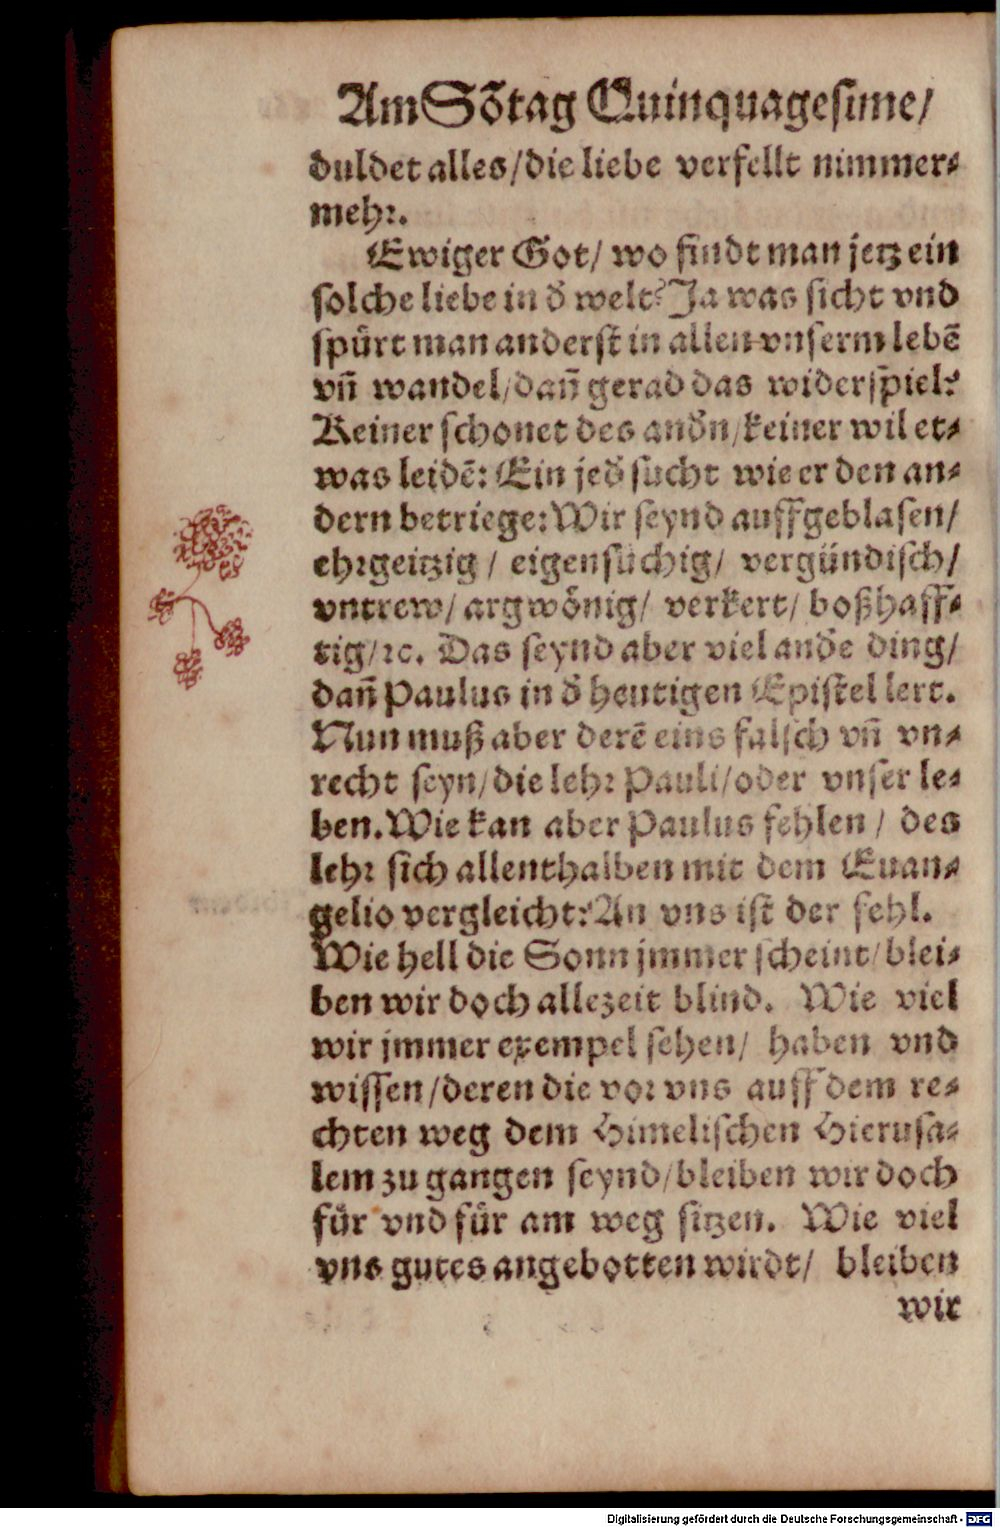 Am Sõtag Quinquagesime/
duldet alles/die liebe verfellt nimmer⸗
mehr.
Ewiger Got/ wo findt man jetz ein
solche liebe in ď welt? Ja was sicht vnd
spürt man anderst in allen vnserm lebẽ
vñ wandel/dañ gerad das widerspiel?
Keiner schonet des anďn/keiner wil et⸗
was leidẽ: Ein jeď sucht wie er den an⸗
dern betriege: Wir seynd auffgeblasen/
ehrgeitzig/ eigensüchig/ vergündisch/
vntrew/ argwönig/ verkert/ boßhaff⸗
tig/ꝛc. Das seynd aber viel anďe ding/
dañ Paulus in ď heutigen Epistel lert.
Nun muß aber derẽ eins falsch vñ vn⸗
recht seyn/die lehr Pauli/oder vnser le⸗
ben. Wie kan aber Paulus fehlen/ des
lehr sich allenthalben mit dem Euan⸗
gelio vergleicht? An vns ist der fehl.
Wie hell die Sonn jmmer scheint/blei⸗
ben wir doch allezeit blind. Wie viel
wir jmmer exempel sehen/ haben vnd
wissen/deren die vor vns auff dem re⸗
chten weg dem Himelischen Hierusa⸗
lem zu gangen seynd/bleiben wir doch
für vnd für am weg sitzen. Wie viel
vns gutes angebotten wirdt/ bleiben
wir
Digitalisierung gefördert durch die Deutsche Forschungsgemeinschaft - DFG